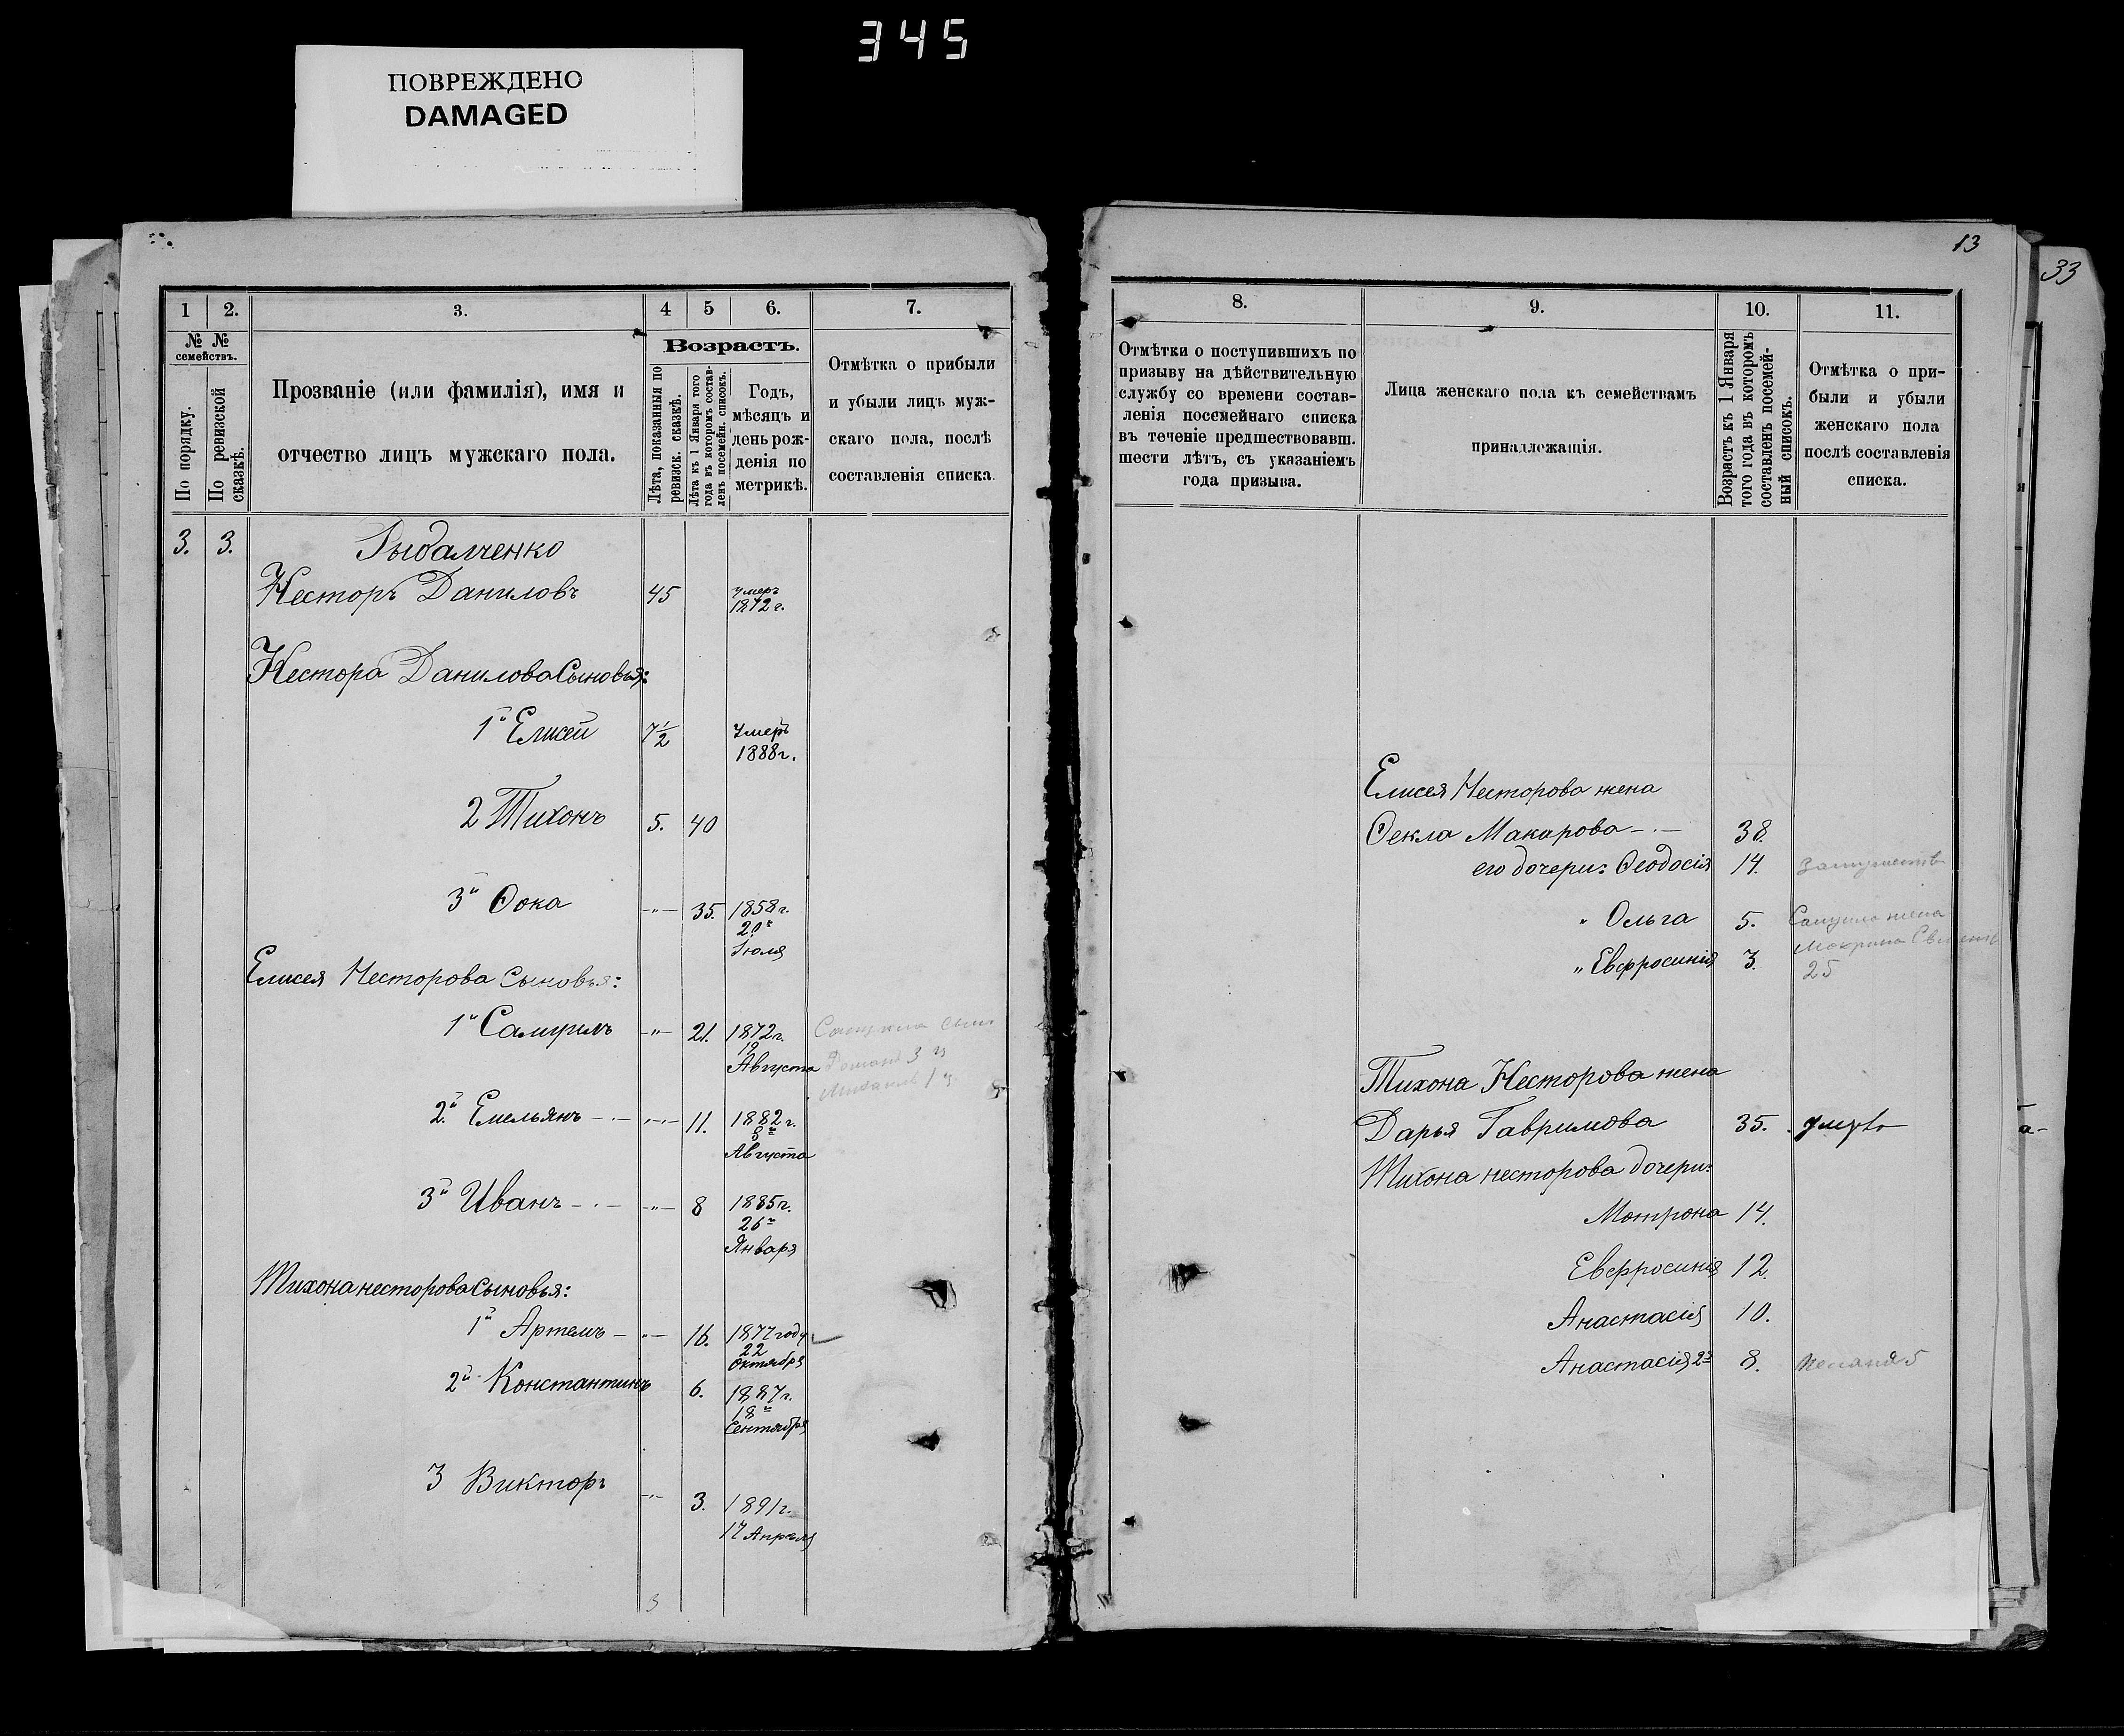 345
ПОВРЕЖДЕНО
DAMAGED
13
33
1 2. 3. 4 5 6. 7.
№ № семействъ.
По порядку.
По ревизской сказкѣ.
Прозваніе (или фамилія), имя и
отчество лицъ мужскаго пола.
Возрастъ.
Лѣта, показанныя по ревизск. сказкѣ.
Лѣта къ 1 Января того года въ которомъ составленъ посемейн. списокъ.
Годъ,
мѣсяцъ и
день рож-
денія по
метрикѣ.
Отмѣтка о прибыли
и убыли лицъ муж-
скаго пола, послѣ
составленія списка.
3. 3. Рыбалченко
Несторъ Даниловъ 45 умеръ
1872 г.
Нестора Данилова Сыновья:
1й Елисей 7½ Умеръ
1888 г.
2 Тихонъ 5. 40
3й Ѳока -"- 35. 1858 г.
20го
Іюля
Елисея Несторова Сыновья:
1й Самуилъ -"- 21. 1872 г. Самуила сын
19
Августа Роман 3 л
Михаилъ 1 л
2й Емельянъ -"- 11. 1882 г.
8го
Августа
3й Иванъ -"- 8 1885 г.
26го
Января
Тихона несторова Сыновья:
1й Артемъ -"- 16. 1877 году
22
Октября
2й Константинъ 6. 1887 г.
18го
Сентября
3 Викторъ -"- 3. 1891 г.
17 Апрѣля
3
8. 9. 10. 11.
Отмѣтки о поступившихъ по
призыву на дѣйствительную
службу со времени состав-
ленія посемейнаго списка
въ теченіе предшествовавш.
шести лѣтъ, съ указаніемъ
года призыва.
Лица женскаго пола къ семействамъ
принадлежащія.
Возрастъ къ 1 Января
того года въ которомъ
составленъ посемей-
ный списокъ.
Отмѣтка о при-
были и убыли
женскаго пола
послѣ составленія
списка.
Елисея Несторова жена
Ѳекла Макарова 38.
его дочери: Ѳеодосія 14.
" Ольга 5. Самуила жена
Макрина
" Евфросинія 3. 25
Тихона Несторова жена
Дарья Гаврилова 35. умерла
Тихона несторова дочери:
Мотрона 14.
Евфросинія 12.
Анастасія 10.
Анастасія 2я 8.
а-